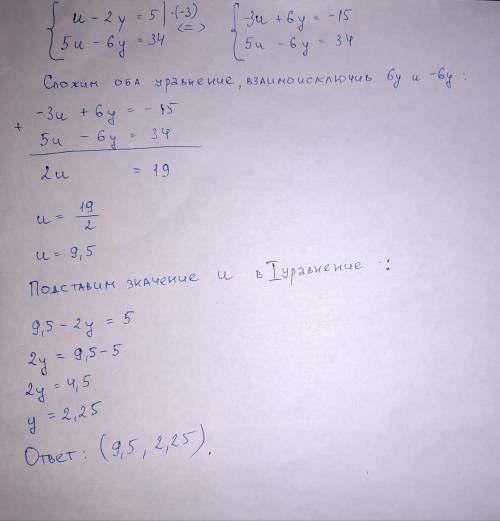 { u - 2y = 5 | ·(-3) <=> { -3u + 6y = -15
{ 5u - 6y = 34 { 5u - 6y = 34
Сложим оба уравнение, взаимоисключив 6y и -6y:
+ -3u + 6y = -15
5u - 6y = 34
2u = 19
u = 19/2
u = 9,5
Подставим значение u в I уравнение :
9,5 - 2y = 5
2y = 9,5 - 5
2y = 4,5
y = 2,25
Ответ: (9,5, 2,25).